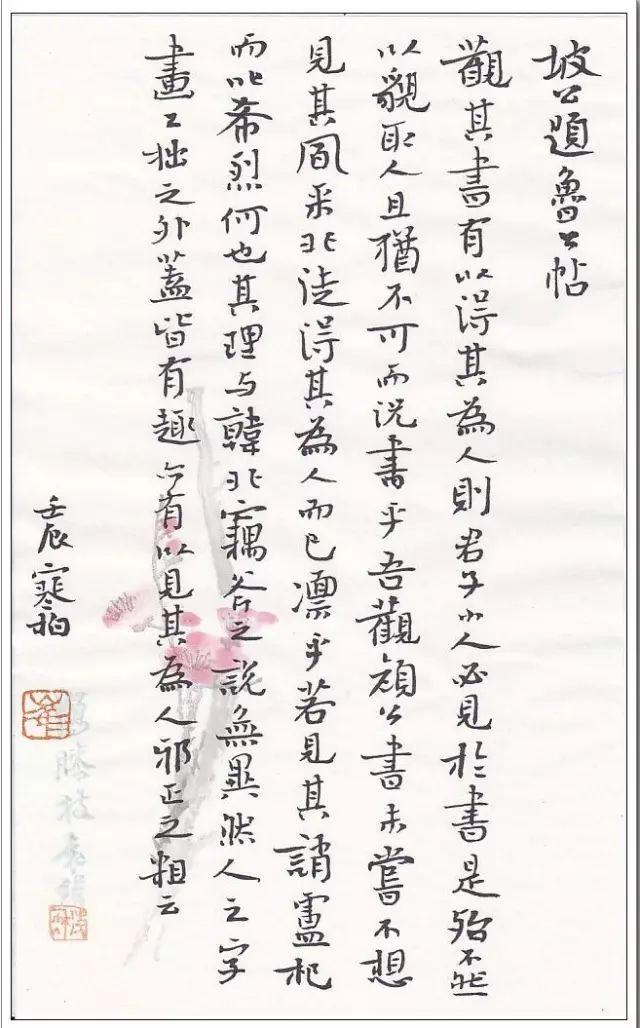 坡公題魯公帖
觀其書有以得其為人則君子小人必見於書是殆不然
以貌取人且猶不可而況書乎吾觀顏公書未嘗不想
見其風采非徒得其為人而已凛乎若見其誚盧杞
而叱希烈何也其理与韓非竊斧之說無異然人之字
畫工拙之外蓋皆有趣亦有以見其為人邪正之粗云
壬辰寒柏